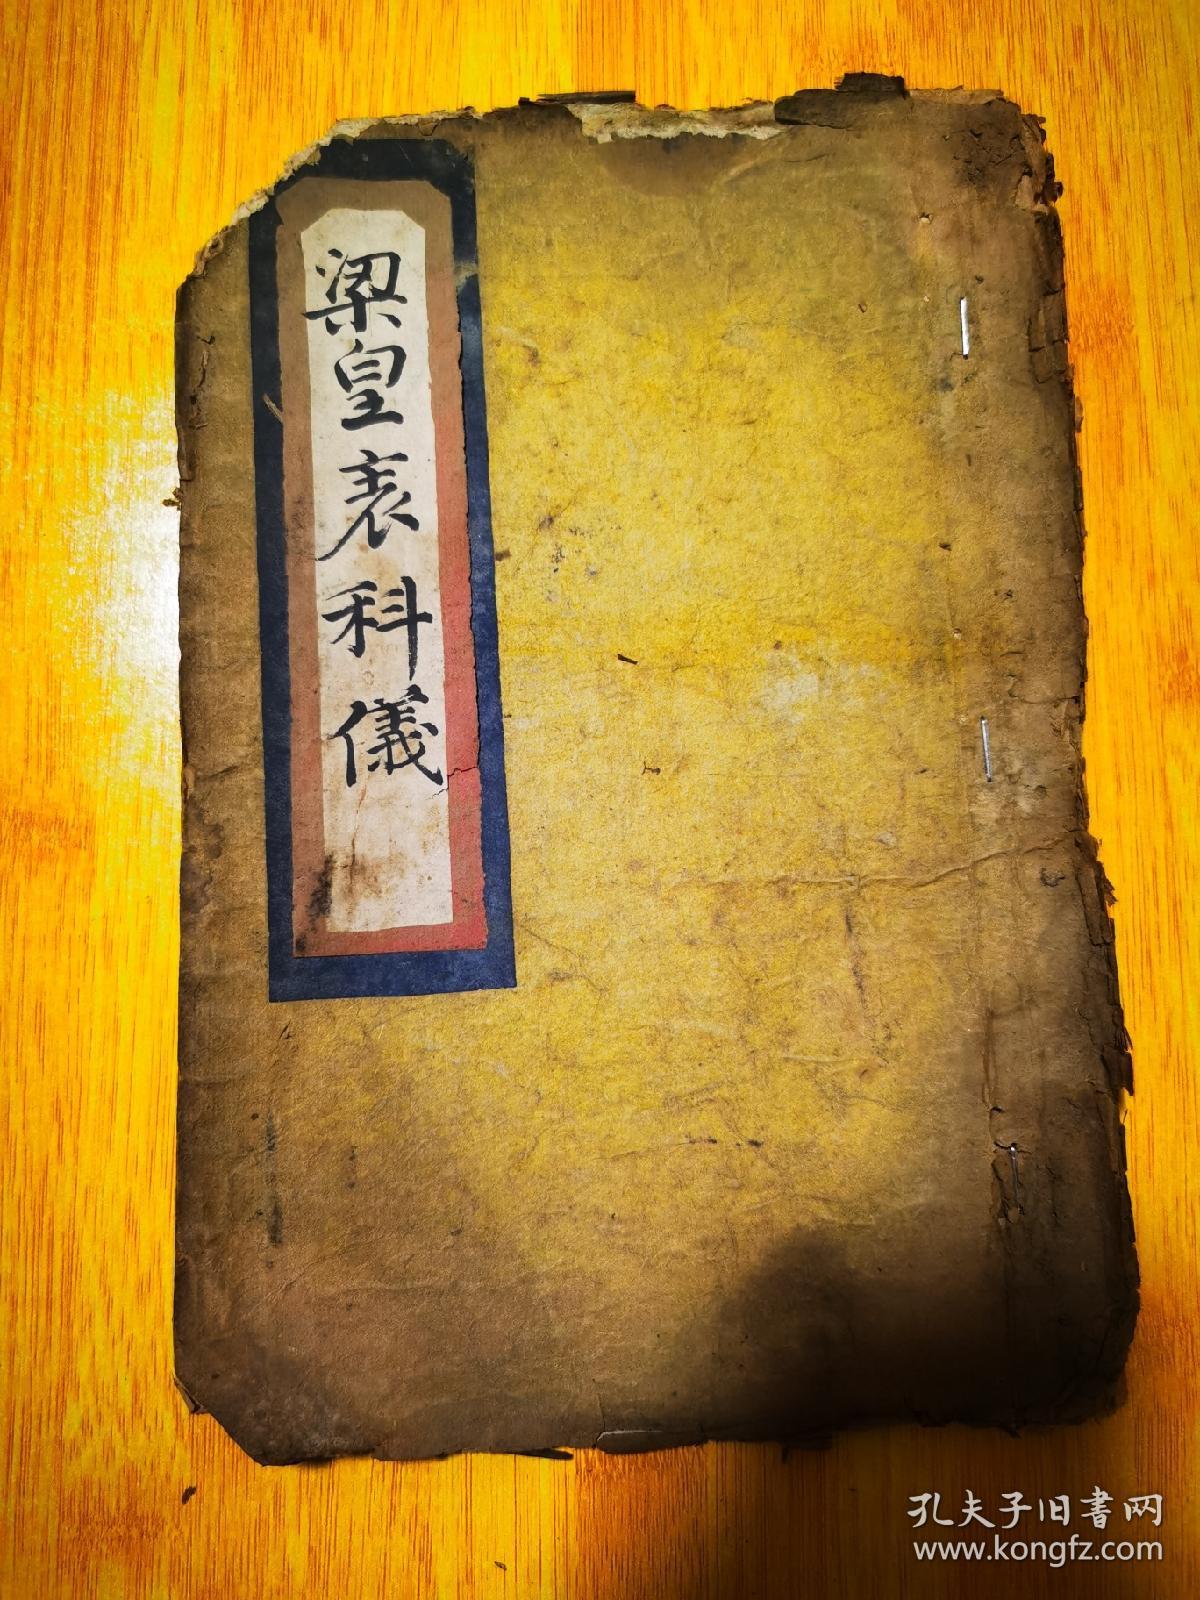 梁皇表科儀
孔夫子旧書网
www.kongfz.com